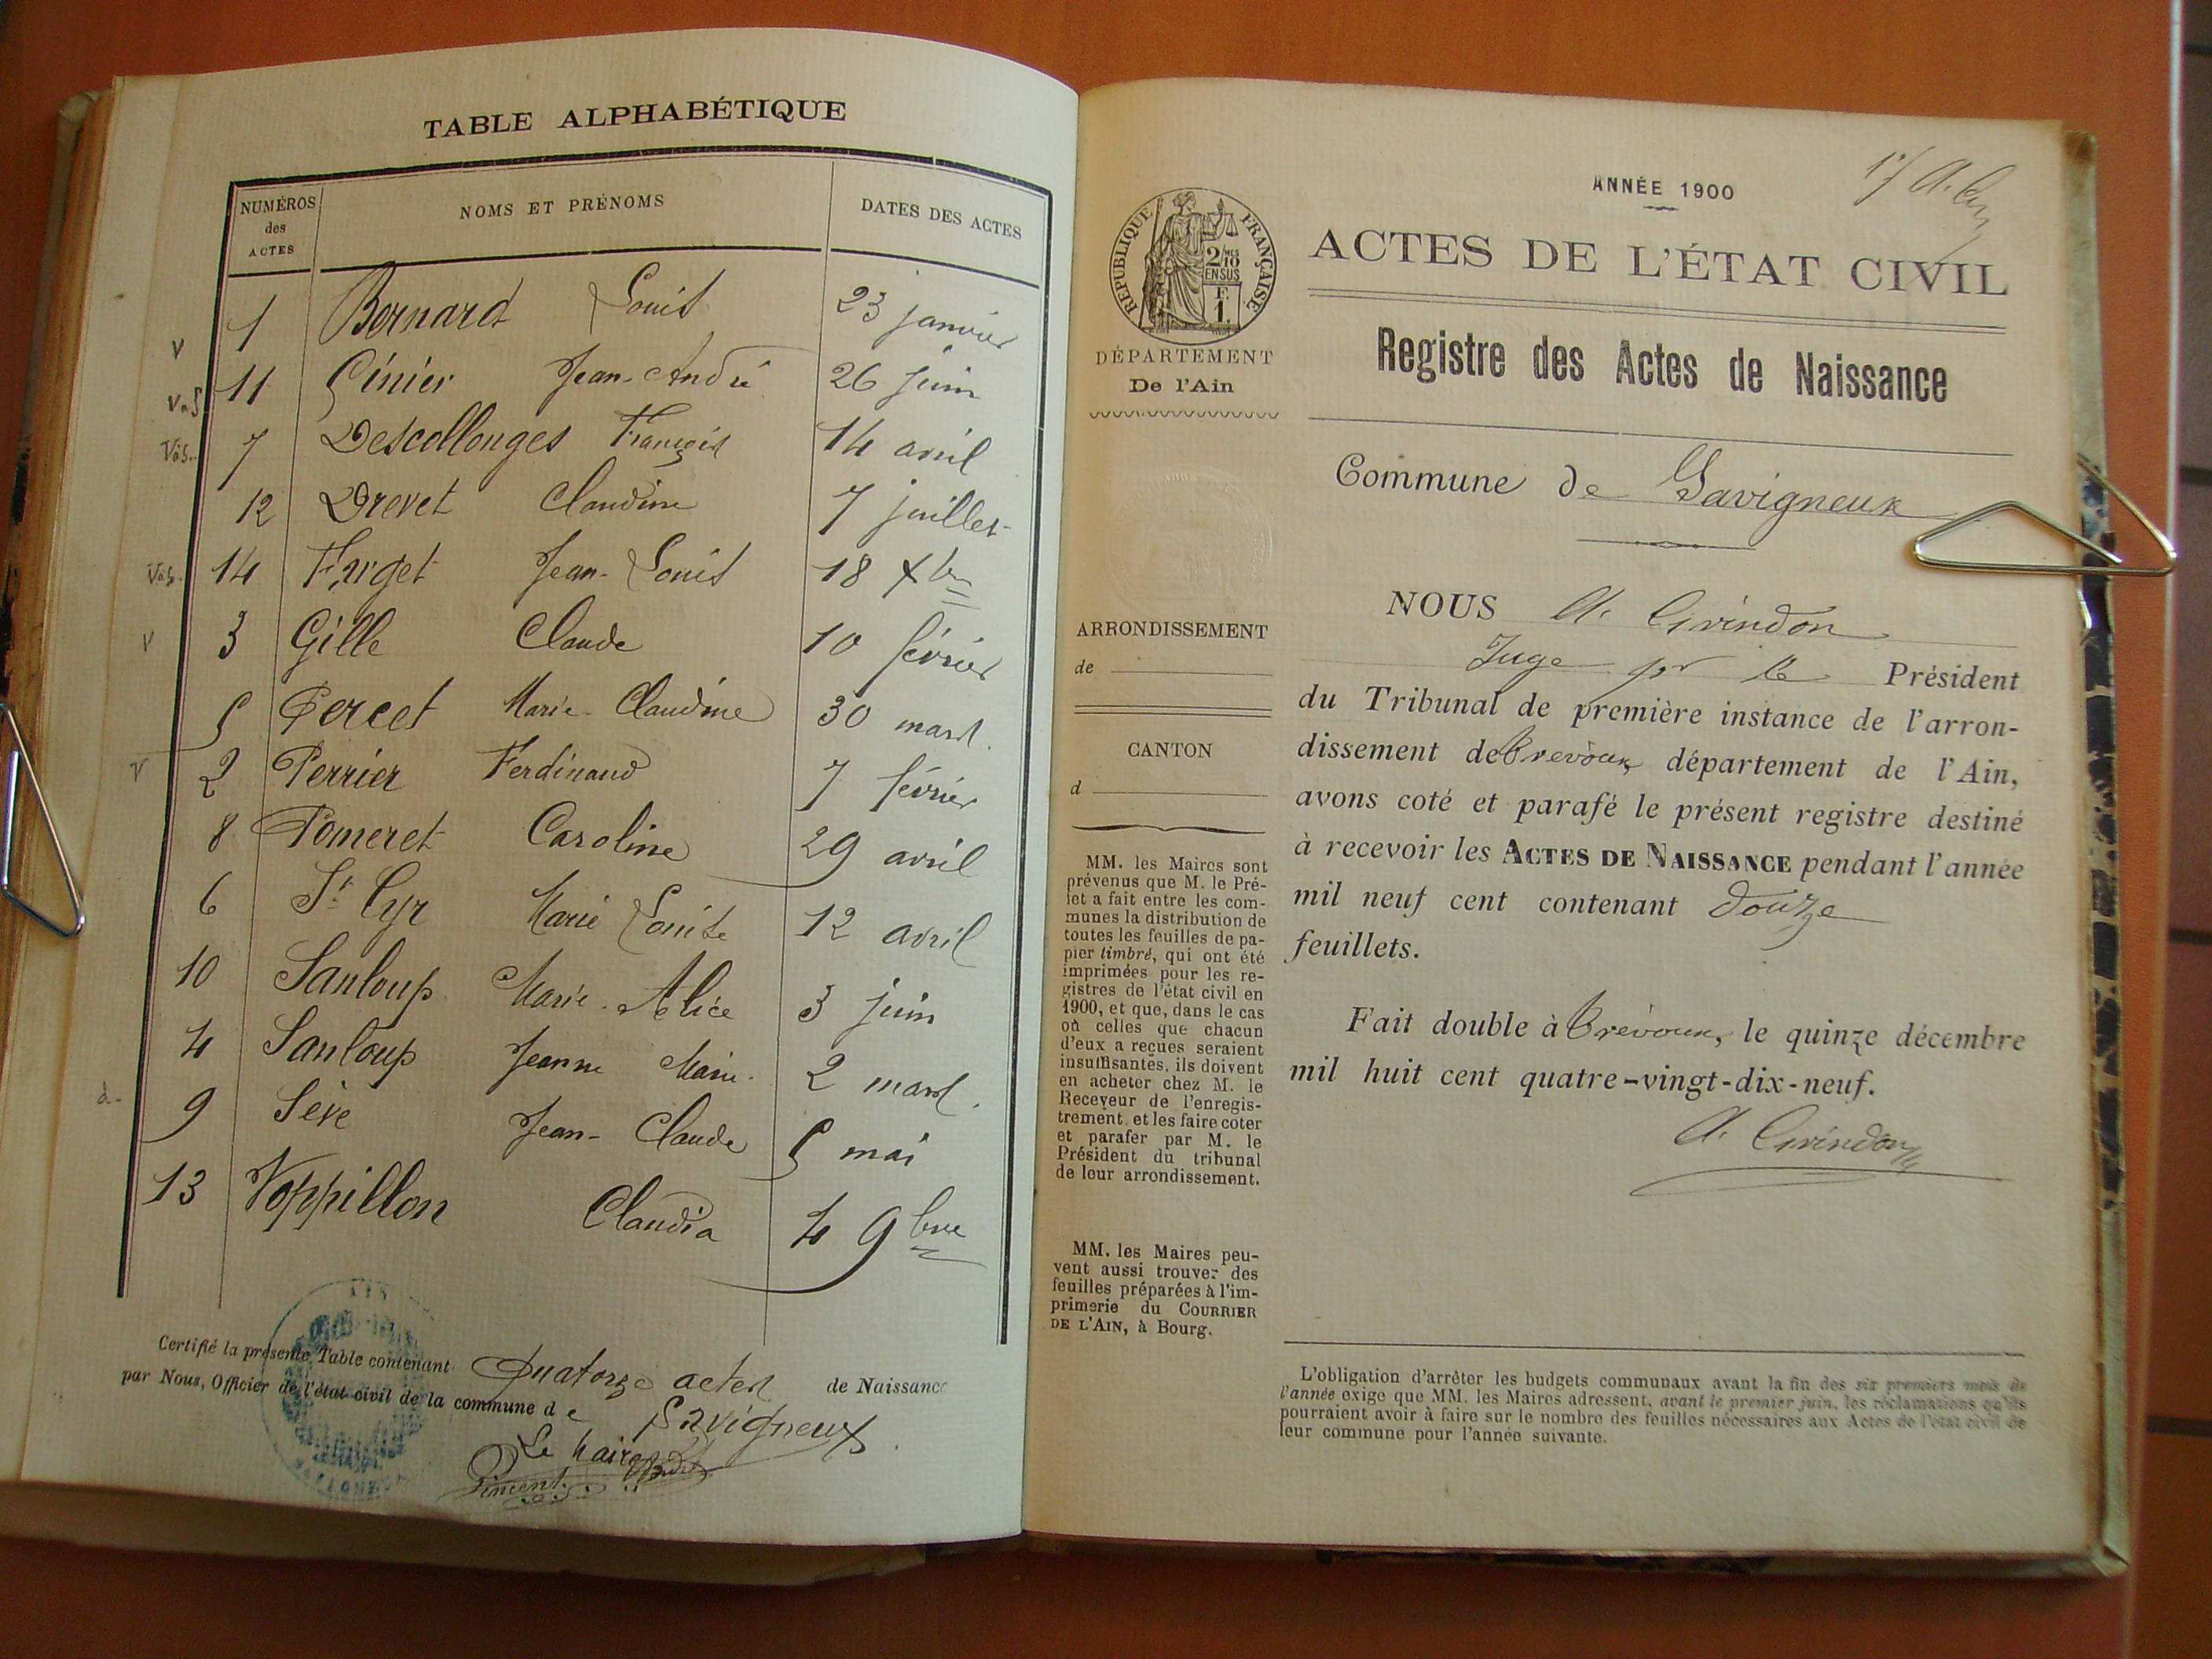 TABLE ALPHABÉTIQUE
NUMÉROS des ACTES
NOMS ET PRÉNOMS
DATES DES ACTES
1 Bernard Louis 23 janvier
11 Cinier Jean-André 26 juin
7 Descollonges François 14 avril
12 Drevet Claudine 7 juillet
14 Furget Jean-Louis 18 Xbre
3 Gille Claude 10 février
5 Percet Marie-Claudine 30 mars.
2 Perrier Ferdinand 7 février
8 Pomeret Caroline 29 avril
6 St Cyr Marie Louise 12 avril
10 Sanloup Marie-Alice 3 juin
4 Sanloup Jeanne Marie 2 mars.
9 Sève Jean-Claude 5 mai
13 Voppillon Claudia 4 9bre
Certifié la présente Table contenant Quatorze actes de Naissance
par Nous, Officier de l'état civil de la commune de Savigneux.
Le Maire
Vincent
ANNÉE 1900
RÉPUBLIQUE FRANÇAISE
2/10MES
EN SUS
F.
1.
DÉPARTEMENT
De l'Ain
ARRONDISSEMENT
de
CANTON
d
MM. les Maires sont
prévenus que M. le Pré-
fet a fait entre les com-
munes la distribution de
toutes les feuilles de pa-
pier timbré, qui ont été
imprimées pour les re-
gistres de l'état civil en
1900, et que, dans le cas
où celles que chacun
d'eux a reçues seraient
insuffisantes, ils doivent
en acheter chez M. le
Receveur de l'enregis-
trement et les faire coter
et parafer par M. le
Président du tribunal
de leur arrondissement.
MM. les Maires peu-
vent aussi trouver des
feuilles préparées à l'im-
primerie du COURRIER
DE L'AIN, à Bourg.
ACTES DE L'ÉTAT CIVIL
Registre des Actes de Naissance
Commune de Savigneux
NOUS A. Grindon
Juge pr le Président
du Tribunal de première instance de l'arron-
dissement de Trévoux département de l'Ain,
avons coté et parafé le présent registre destiné
à recevoir les ACTES DE NAISSANCE pendant l'année
mil neuf cent contenant douze
feuillets.
Fait double à Trévoux, le quinze décembre
mil huit cent quatre-vingt-dix-neuf.
A. Grindon
L'obligation d'arrêter les budgets communaux avant la fin des six premiers mois de
l'année exige que MM. les Maires adressent, avant le premier juin, les réclamations qu'ils
pourraient avoir à faire sur le nombre des feuilles nécessaires aux Actes de l'état civil de
leur commune pour l'année suivante.